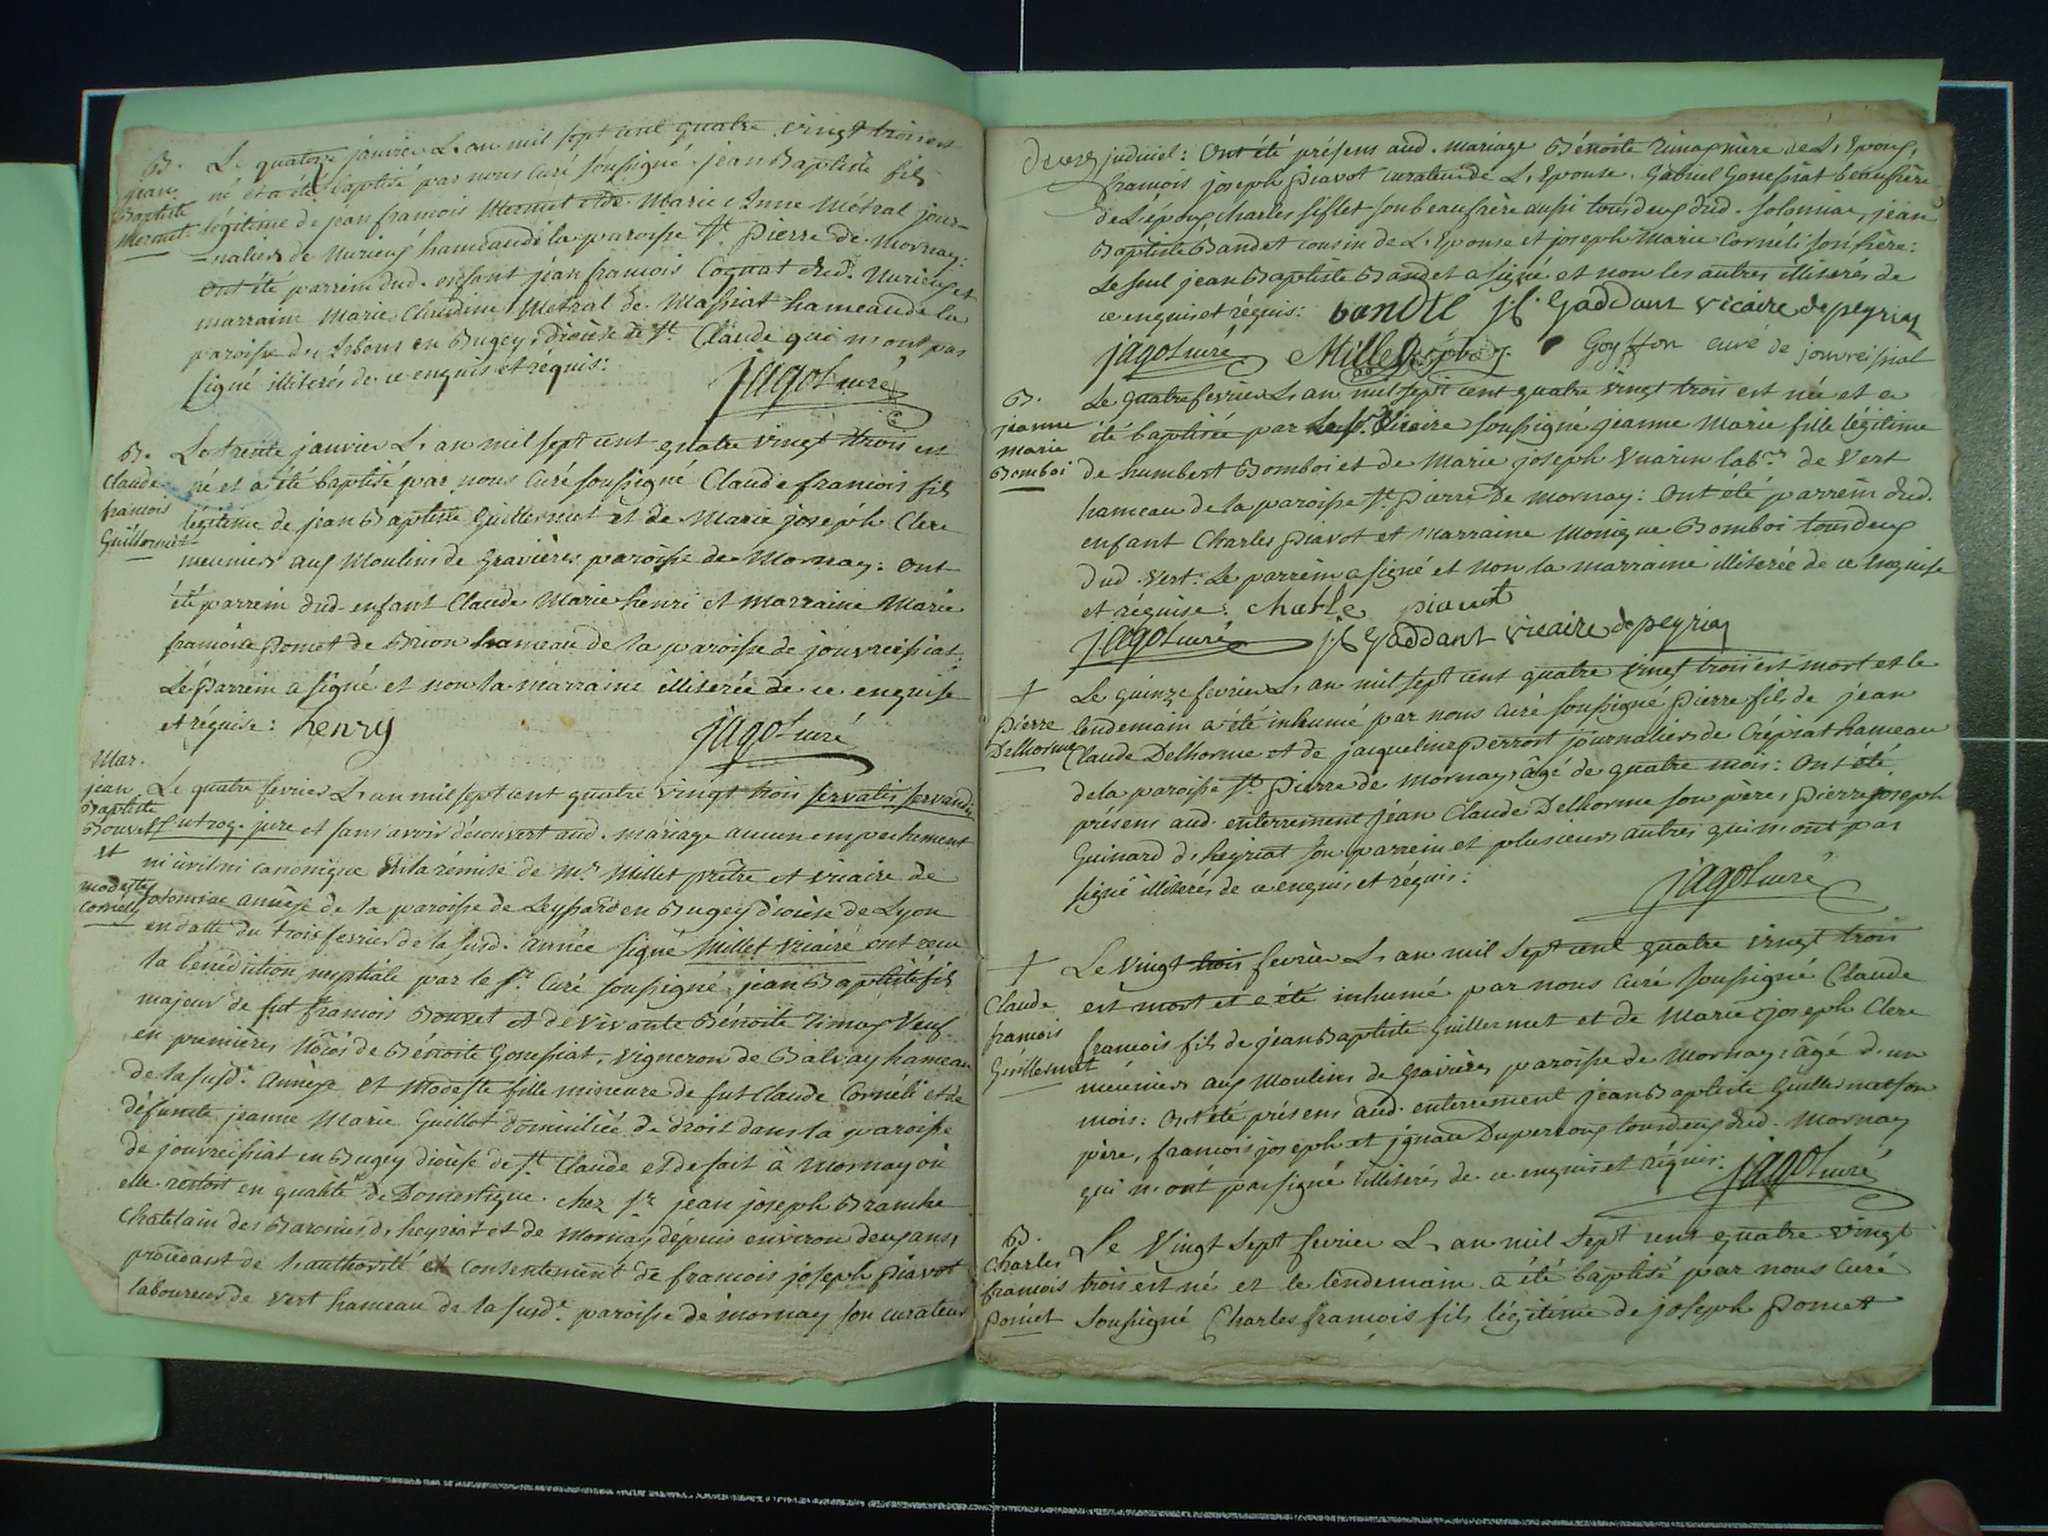 B.
jean
Baptiste
Mermet
Le quatorze janvier L'an mil sept cent quatre vingt trois est
né et a été baptisé par nous Curé soussigné jean Baptiste fils
légitime de jean francois Mermet et de Marie Anne Metral jour-
-naliers de Nurieux hameau de la paroisse St. Pierre de Mornay:
Ont été parrein dud. enfant jean francois Cognat dud. Nurieux et
marraine Marie Claudine Metral de Massiat hameau de la
paroisse de Isbens en Bugey, diocèse de St. Claude qui n'ont pas
signé illiterés de ce enquis et réquis:
jagot curé
B.
Claude
francois
Guillermet
Le trente janvier L'an mil sept cent quatre vingt trois est
né et a été baptisé par nous Curé soussigné Claude francois fils
légitime de jean Baptiste Guillermet et de Marie joseph Clerc
meuniers aux Moulins de Gravières paroisse de Mornay: Ont
été parrein dud. enfant Claude Marie henri et marraine Marie
francoise Pomet de Brion hameau de la paroisse de jouvreissiat:
Le parrein a signé et non la marraine illiterée de ce enquise
et réquise: henry
jagot curé
Mar.
jean
Baptiste
Bouvet
et
modeste
Cornély
Le quatre fevrier L'an mil sept cent quatre vingt trois servatis servandis
utroq. jure et sans avoir découvert aud. mariage aucun empechement
ni civil ni canonique vû la rémise de Mr. Millet prêtre et vicaire de
solomiac annèxe de la paroisse de Leyssard en Bugey diocèse de Lyon
en datte du trois fevrier de la susd. année signé Millet vicaire ont recu
la bénédiction nuptiale par le Sr. Curé soussigné jean Baptiste fils
majeur de fut francois Bouvet et de vivante Bénoite Rimay Veuf
en premières Nôces de Bénoite Gonessiat, vigneron de Balvay hameau
de la susde. Annèxe et Modeste fille mineure de fut Claude Cornéli et de
défunte jeanne Marie Guillot domiciliée de droit dans la paroisse
de jouvreissiat en Bugey diocèse de St. Claude et de fait à Mornay où
elle restoit en qualité de Domestique chez Sr. jean joseph Branche
Chatelain des Baronies d'heyriat et de Mornay dépuis environ deux ans,
procédant de l'authorité et consentement de francois joseph Piavot
laboureur de Vert hameau de la susde. paroisse de mornay son curateur
judiciel: Ont été présens aud. mariage Bénoite Rimay mère de L'Epoux,
francois joseph Piavot curateur de L'Epouse, Gabriel Gonessiat beaufrère
de L'époux charles siflet son beaufrère aussi tous deux dud. solomiac, jean
Baptiste Bandet cousin de L'Epouse et joseph Marie Cornéli son frère:
Le seul jean Baptiste Bandet a signé et non les autres illiterés de
ce enquis et réquis: bandet jh. Gaddant vicaire de peyriat
jagot curé Millet Goyffon curé de jouvreissiat
B.
jeanne
marie
Bomboi
Le quatre fevrier L'an mil sept cent quatre vingt trois est née et a
été baptisée par Vicaire soussigné jeanne Marie fille légitime
de humbert Bomboi et de Marie joseph Vuarin labrs. de Vert
hameau de la paroisse St. Pierre De Mornay: Ont été parrein dud.
enfant Charles Piavot et Marraine Monique Bomboi tous deux
dud. Vert: Le parrein a signé et non la marraine illiterée de ce enquise
et réquise: charle piavot
jagot curé jh Gaddant vicaire de peyriat
+
Pierre
Delhorme
Le quinze fevrier L'an mil sept cent quatre vingt trois est mort et le
lendemain a été inhumé par nous curé soussigné Pierre fils de jean
Claude Delhorme et de jacqueline perrost journaliers de Crépiat hameau
de la paroisse St. Pierre de Mornay, âgé de quatre mois: Ont été
présens aud. enterrement jean Claude Delhorme son père, Pierre joseph
Guinard d'heyriat son parrein et plusieurs autres qui n'ont pas
signé illiterés de ce enquis et réquis:
jagot curé
+
Claude
francois
Guillermet
Le vingt trois fevrier L'an mil sept cent quatre vingt trois
est mort et a été inhumé par nous curé soussigné Claude
francois fils de jean Baptiste Guillermet et de Marie joseph Clerc
meuniers aux Moulins de Gravières paroisse de Mornay: âgé d'un
mois: Ont été présens aud. enterrement jean Baptiste Guillermet son
père, francois joseph et jgnace Duperroux tous deux dud. Mornay
qui n'ont pas signé illiterés de ce enquis et réquis: jagot curé
B.
Charles
francois
Pomet
Le Vingt sept fevrier L'an mil sept cent quatre vingt
trois est né et le lendemain a été baptisé par nous curé
soussigné Charles francois fils légitime de joseph Pomet